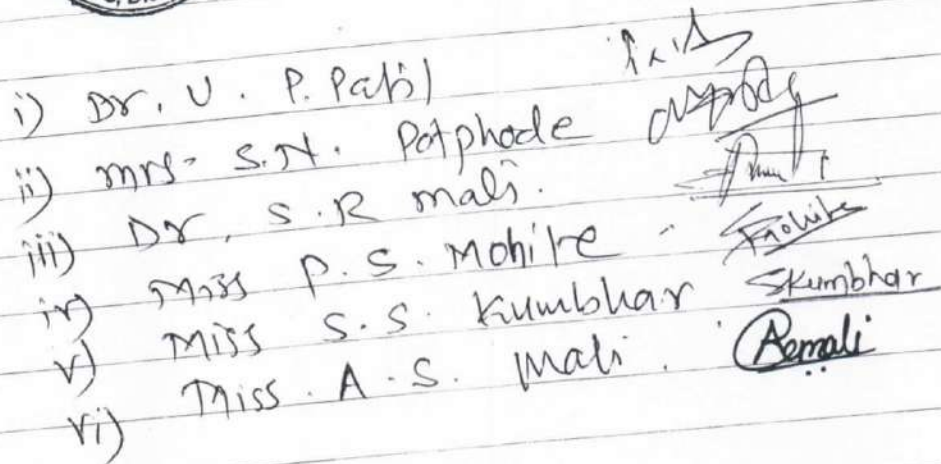 i) Dr. U. P. Patil
ii) Mrs. S.N. Potphode
iii) Dr. S.R Mali.
iv) Miss P. S. Mohite - Mohite
v) Miss S.S. Kumbhar SKumbhar
vi) Miss. A.S. Mali. Asmali